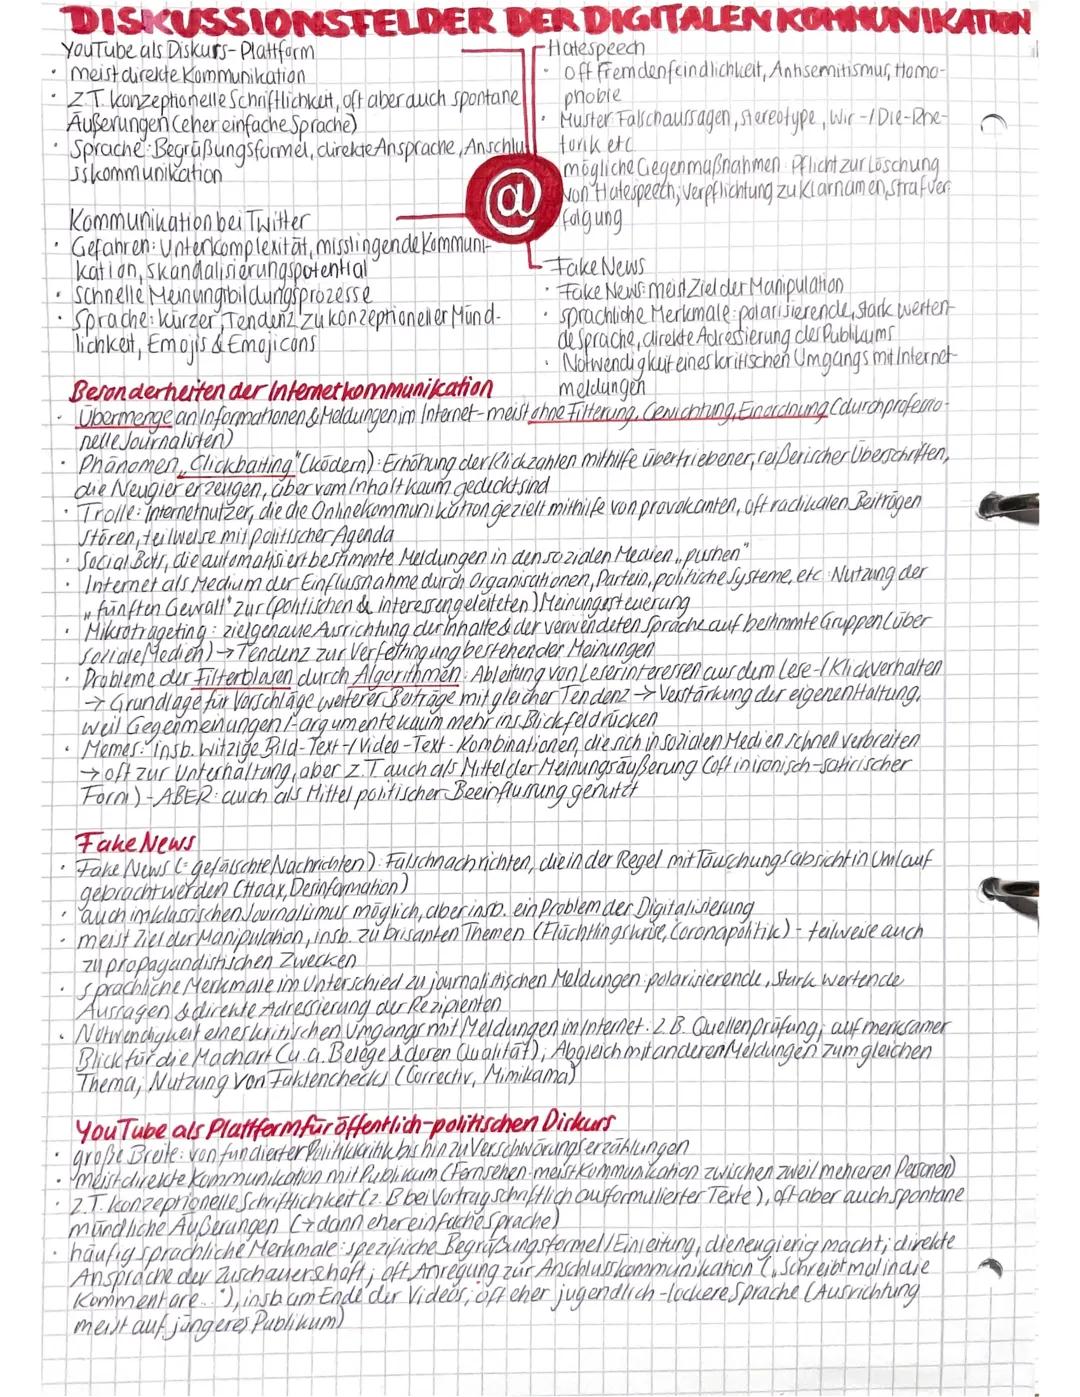 DISKUSSIONSFELDER DER DIGITALEN KOMMUNIKATION
YouTube als Diskurs-Plattform
· meist direkte Kommunikation
· Z.T. konzeptionelle Schriftlichkeit, oft aber auch spontane
Äußerungen (eher einfache Sprache)
· Sprache: Begrüßungsformel, direkte Ansprache, Anschlu
sskommunikation
Kommunikation bei Twitter
· Gefahren: Unterkomplexität, misslingende Kommuni-
kation, Skandalisierungspotential
· schnelle Meinungbildungsprozesse
· Sprache: kürzer, Tendenz zu konzeptioneller Münd-
lichkeit, Emojis & Emojicons
@
Hatespeech
· oft Fremdenfeindlichkeit, Antisemitismus, Homo-
phobie
· Muster Falschaussagen, stereotype, Wir-/Die-Rhe-
torik etc.
mögliche Gegenmaßnahmen: Pflicht zur Löschung
von Hatespeech, Verpflichtung zu Klarnamen, Strafver
folgung
Fake News
· Fake News: meist Ziel der Manipulation
· sprachliche Merkmale: polarisierende, stark werten-
de Sprache, direkte Adressierung des Publikums
· Notwendigkeit eines kritischen Umgangs mit Internet-
meldungen
Besonderheiten der Internetkommunikation
· Übermenge an Informationen & Meldungen im Internet - meist ohne Filterung, Gewichtung, Einordnung (durch professio-
nelle Journalisten)
· Phänomen „Clickbaiting" (ködern): Erhöhung der Klickzahlen mithilfe übertriebener, reißerischer Überschriften,
die Neugier erzeugen, aber vom Inhalt kaum gedeckt sind
· Trolle: Internetnutzer, die die Onlinekommunikation gezielt mithilfe von provokanten, oft radikalen Beiträgen
stören, teilweise mit politischer Agenda
· Social Bots, die automatisiert bestimmte Meldungen in den sozialen Medien „pushen"
· Internet als Medium der Einflussnahme durch Organisationen, Partein, politische Systeme, etc: Nutzung der
„fünften Gewalt" zur (politischen & interessengeleiteten) Meinungssteuerung
· Mikrotrageting: zielgenaue Ausrichtung der Inhalte & der verwendeten Sprache auf bestimmte Gruppen (über
soziale Medien) → Tendenz zur Verfestigung bestehender Meinungen
· Probleme der Filterblasen durch Algorithmen: Ableitung von Leserinteressen aus dem Lese-/Klickverhalten
→ Grundlage für Vorschläge weiterer Beiträge mit gleicher Tendenz → Verstärkung der eigenen Haltung,
weil Gegenmeinungen/-argumente kaum mehr ins Blickfeld rücken
· Memes: insb. witzige Bild-Text-/Video-Text-Kombinationen, die sich in sozialen Medien schnell verbreiten
→ oft zur Unterhaltung, aber z.T. auch als Mittel der Meinungsäußerung (oft in ironisch-satirischer
Form) - ABER: auch als Mittel politischer Beeinflussung genutzt
Fake News
· Fake News (= gefälschte Nachrichten): Falschnachrichten, die in der Regel mit Täuschungsabsicht in Umlauf
gebracht werden (Hoax, Desinformation)
· auch im klassischen Journalismus möglich, aber insb. ein Problem der Digitalisierung
· meist Ziel der Manipulation, insb. zu brisanten Themen (Flüchtlingskrise, Coronapolitik) - teilweise auch
zu propagandistischen Zwecken
· sprachliche Merkmale im Unterschied zu journalistischen Meldungen: polarisierende, stark wertende
Aussagen & direkte Adressierung der Rezipienten
· Notwendigkeit eines kritischen Umgangs mit Meldungen im Internet: z.B. Quellenprüfung; aufmerksamer
Blick für die Machart (u.a. Belege & deren Qualität); Abgleich mit anderen Meldungen zum gleichen
Thema; Nutzung von Faktenchecks (Correctiv, Mimikama)
YouTube als Plattform für öffentlich-politischen Diskurs
· große Breite: von fundierter Politikkritik bis hin zu Verschwörungserzählungen
· meist direkte Kommunikation mit Publikum (Fernsehen - meist Kommunikation zwischen zwei/mehreren Personen)
· z.T. konzeptionelle Schriftlichkeit (z.B bei Vortrag schriftlich ausformulierter Texte), oft aber auch spontane
mündliche Äußerungen (→ dann eher einfache Sprache)
· häufig sprachliche Merkmale: spezifische Begrüßungsformel/Einleitung, die neugierig macht; direkte
Ansprache der Zuschauerschaft; oft Anregung zur Anschlusskommunikation („schreibt mal in die
Kommentare..."), insb. am Ende der Videos; oft eher jugendlich-lockere Sprache (Ausrichtung
meist auf jüngeres Publikum)